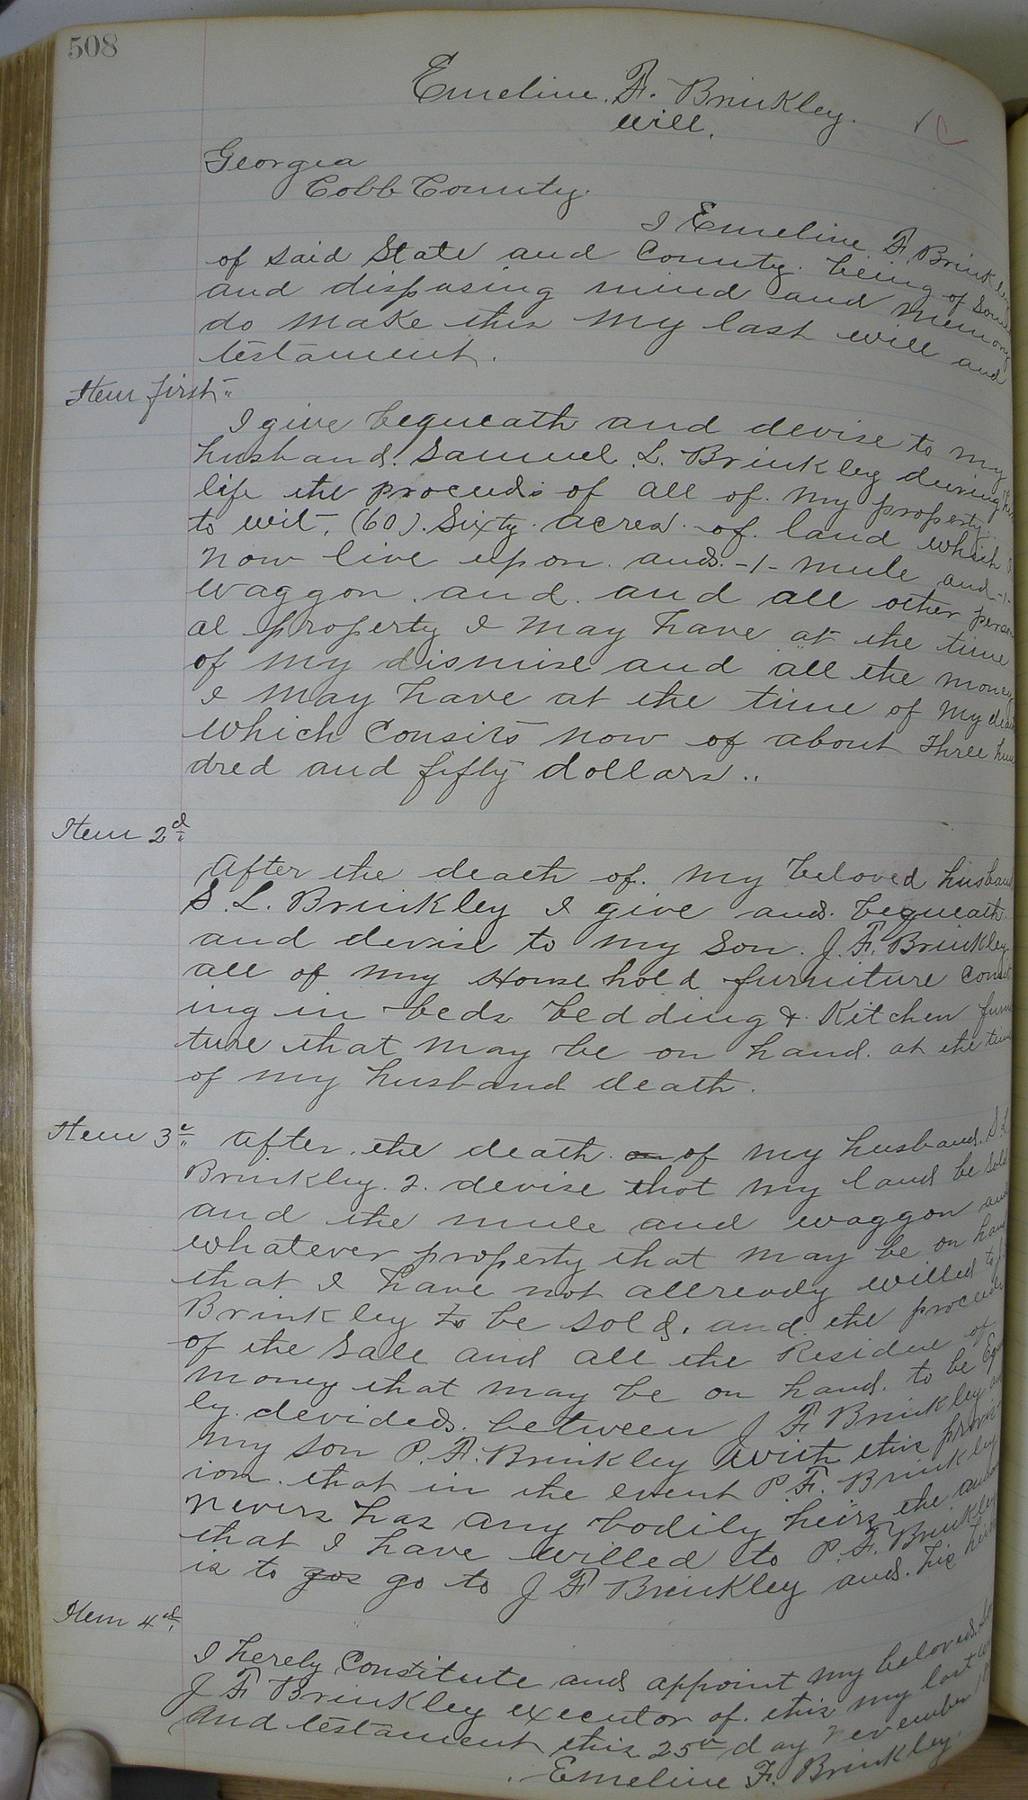 508
Emeline. F. Brinkley.
will.
Georgia
Cobb County.
I Emeline F. Brinkley
of said State and County. being of Sound
and disposing mind and memory
do make this my last will and
testament.
Item first"
I give bequeath and devise to my
husband. Samuel. L. Brinkley during his
life the proceeds of all of. my property.
to wit, (60). Sixty. acres. of. land which I
now live upon. and. -1- mule and -1-
waggon. and. and all other person
al property I may have at the time
of my dismise and all the money
I may have at the time of my death
which Consits now of about Three hun
dred and fifty dollars..
Item 2d
After the death of. my beloved husband
S. L. Brinkley I give and. bequeath
and devise to my Son. J. F. Brinkley
all of my House hold furniture Consist
ing in beds bedding & Kitchen furni
ture that may be on hand. at the time
of my husband death.
Item 3d After. the death. on of my husband. S. L.
Brinkley. I. devise that my land be sold
and the mule and waggon and
whatever property that may be on hand
that I have not allready willed to J. F.
Brinkley to be sold. and. the proceeds
of the Sale and all the Residue of
money that may be on hand. to be Equal
ly. devided. between J F Brinkley and
my son P. F. Brinkley with this provis
ion. that in the event P. F. Brinkley
nevers has any bodily heirs the amount
that I have willed to P. F. Brinkley
is to goe go to J F Brinkley and. his heirs
Item 4th
I herely Constitute and appoint my beloved. Son
J F Brinkley executor of. this my last will
and testament this 25th day November
Emeline F. Brinkley.